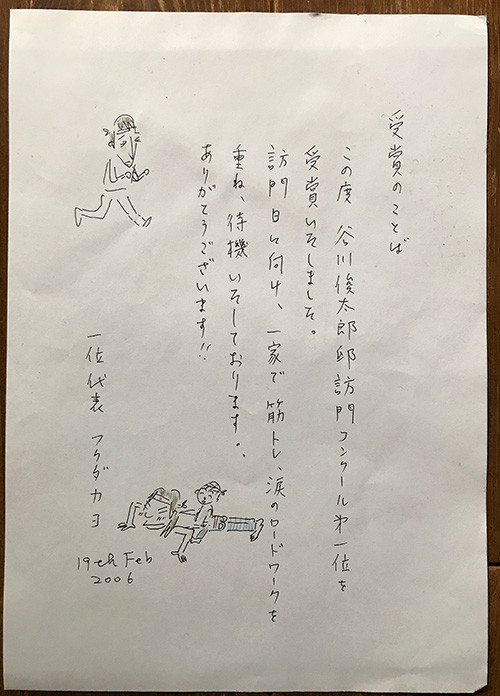 受賞のことば
この度 谷川俊太郎邸訪門コンクール第一位を
受賞いたしました。
訪門日に向け、一家で筋トレ、涙のロードワークを
重ね、待機いたしております。
ありがとうございます!!
一位代表 フクダカヨ
19th Feb
2006